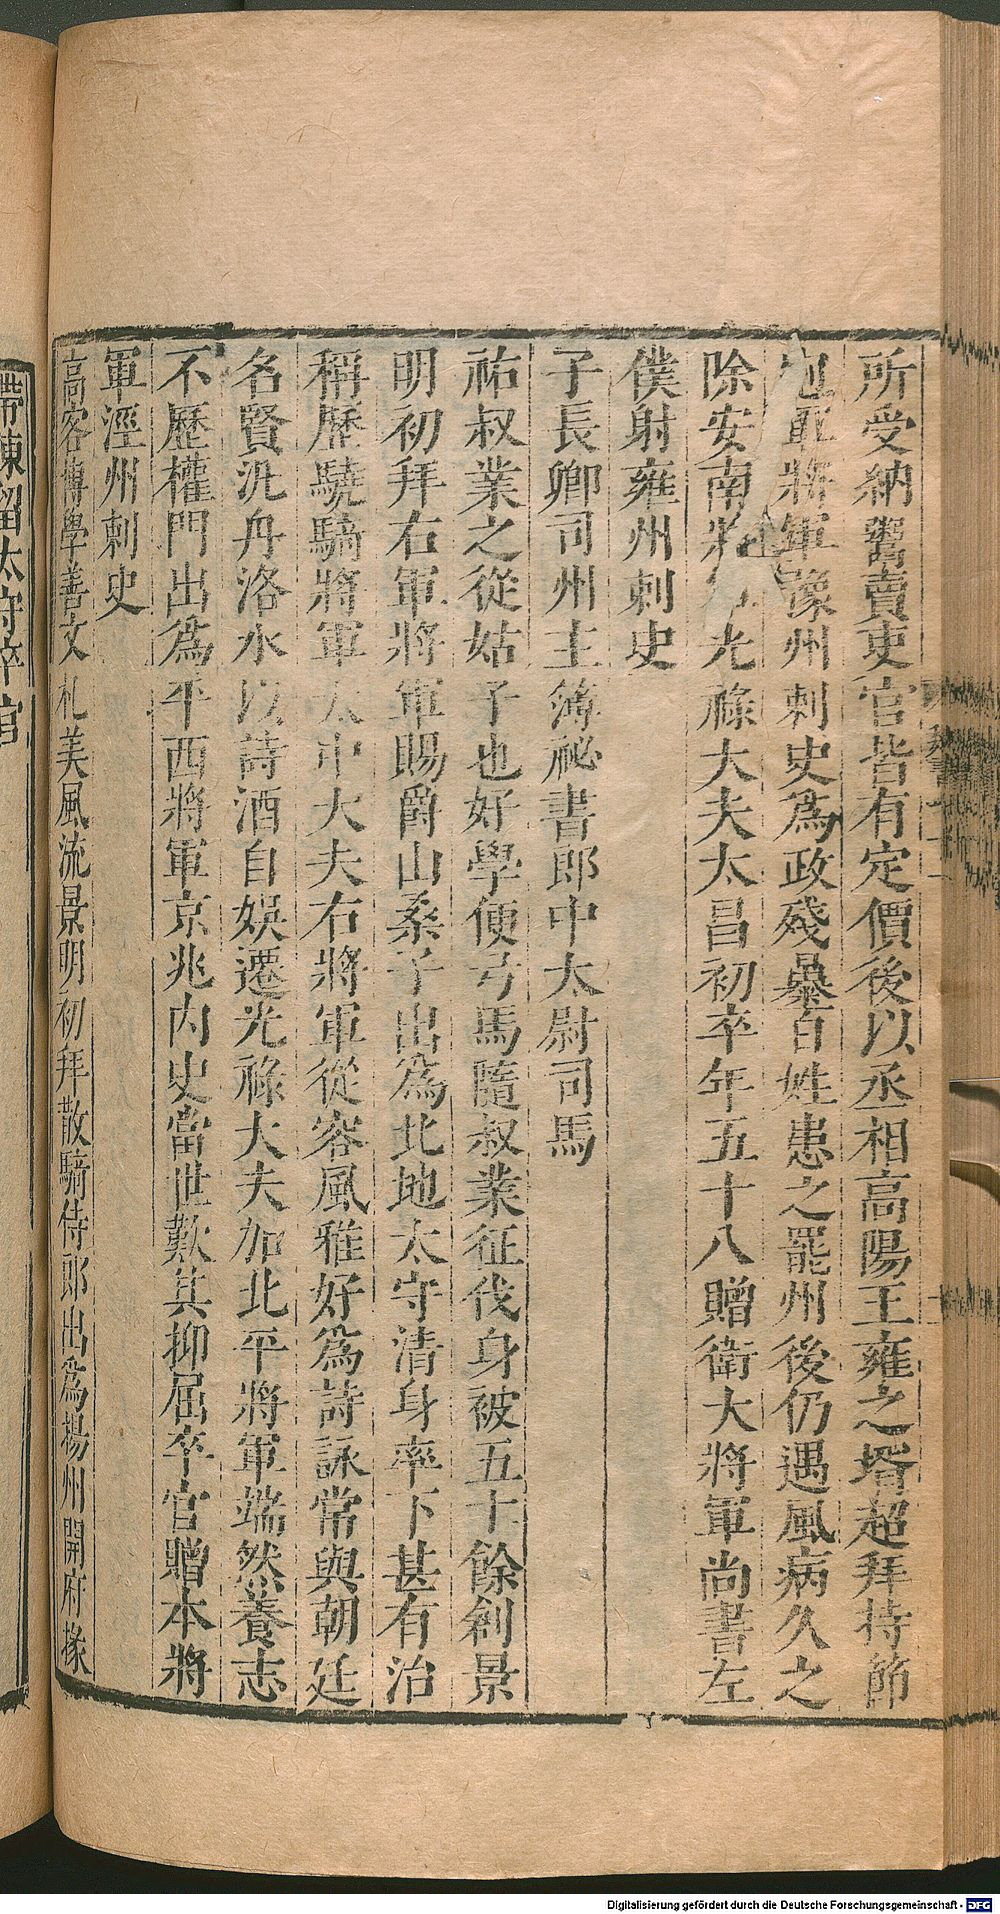 所受納鬻賣吏官皆有定價後以丞相高陽王雍之壻超拜持節
軍將軍豫州刺史爲政殘暴百姓患之罷州後仍遇風病久之
除安南光祿大夫太昌初卒年五十八贈衛大將軍尚書左
僕射雍州刺史
子長卿司州主簿祕書郎中太尉司馬
祐叔業之從姑子也好學便弓馬隨叔業征伐身被五十餘創景
明初拜右軍將軍賜爵山桑子出爲北地太守清身率下甚有治
稱歷驍騎將軍太中大夫右將軍從容風雅好爲詩詠常與朝廷
名賢汎舟洛水以詩酒自娛遷光祿大夫加北平將軍端然養志
不歷權門出爲平西將軍京兆內史當世歎其抑屈卒官贈本將
軍涇州刺史
高客博學善文札美風流景明初拜散騎侍郎出爲揚州開府掾
帶陳留太守卒官
Digitalisierung gefördert durch die Deutsche Forschungsgemeinschaft - DFG